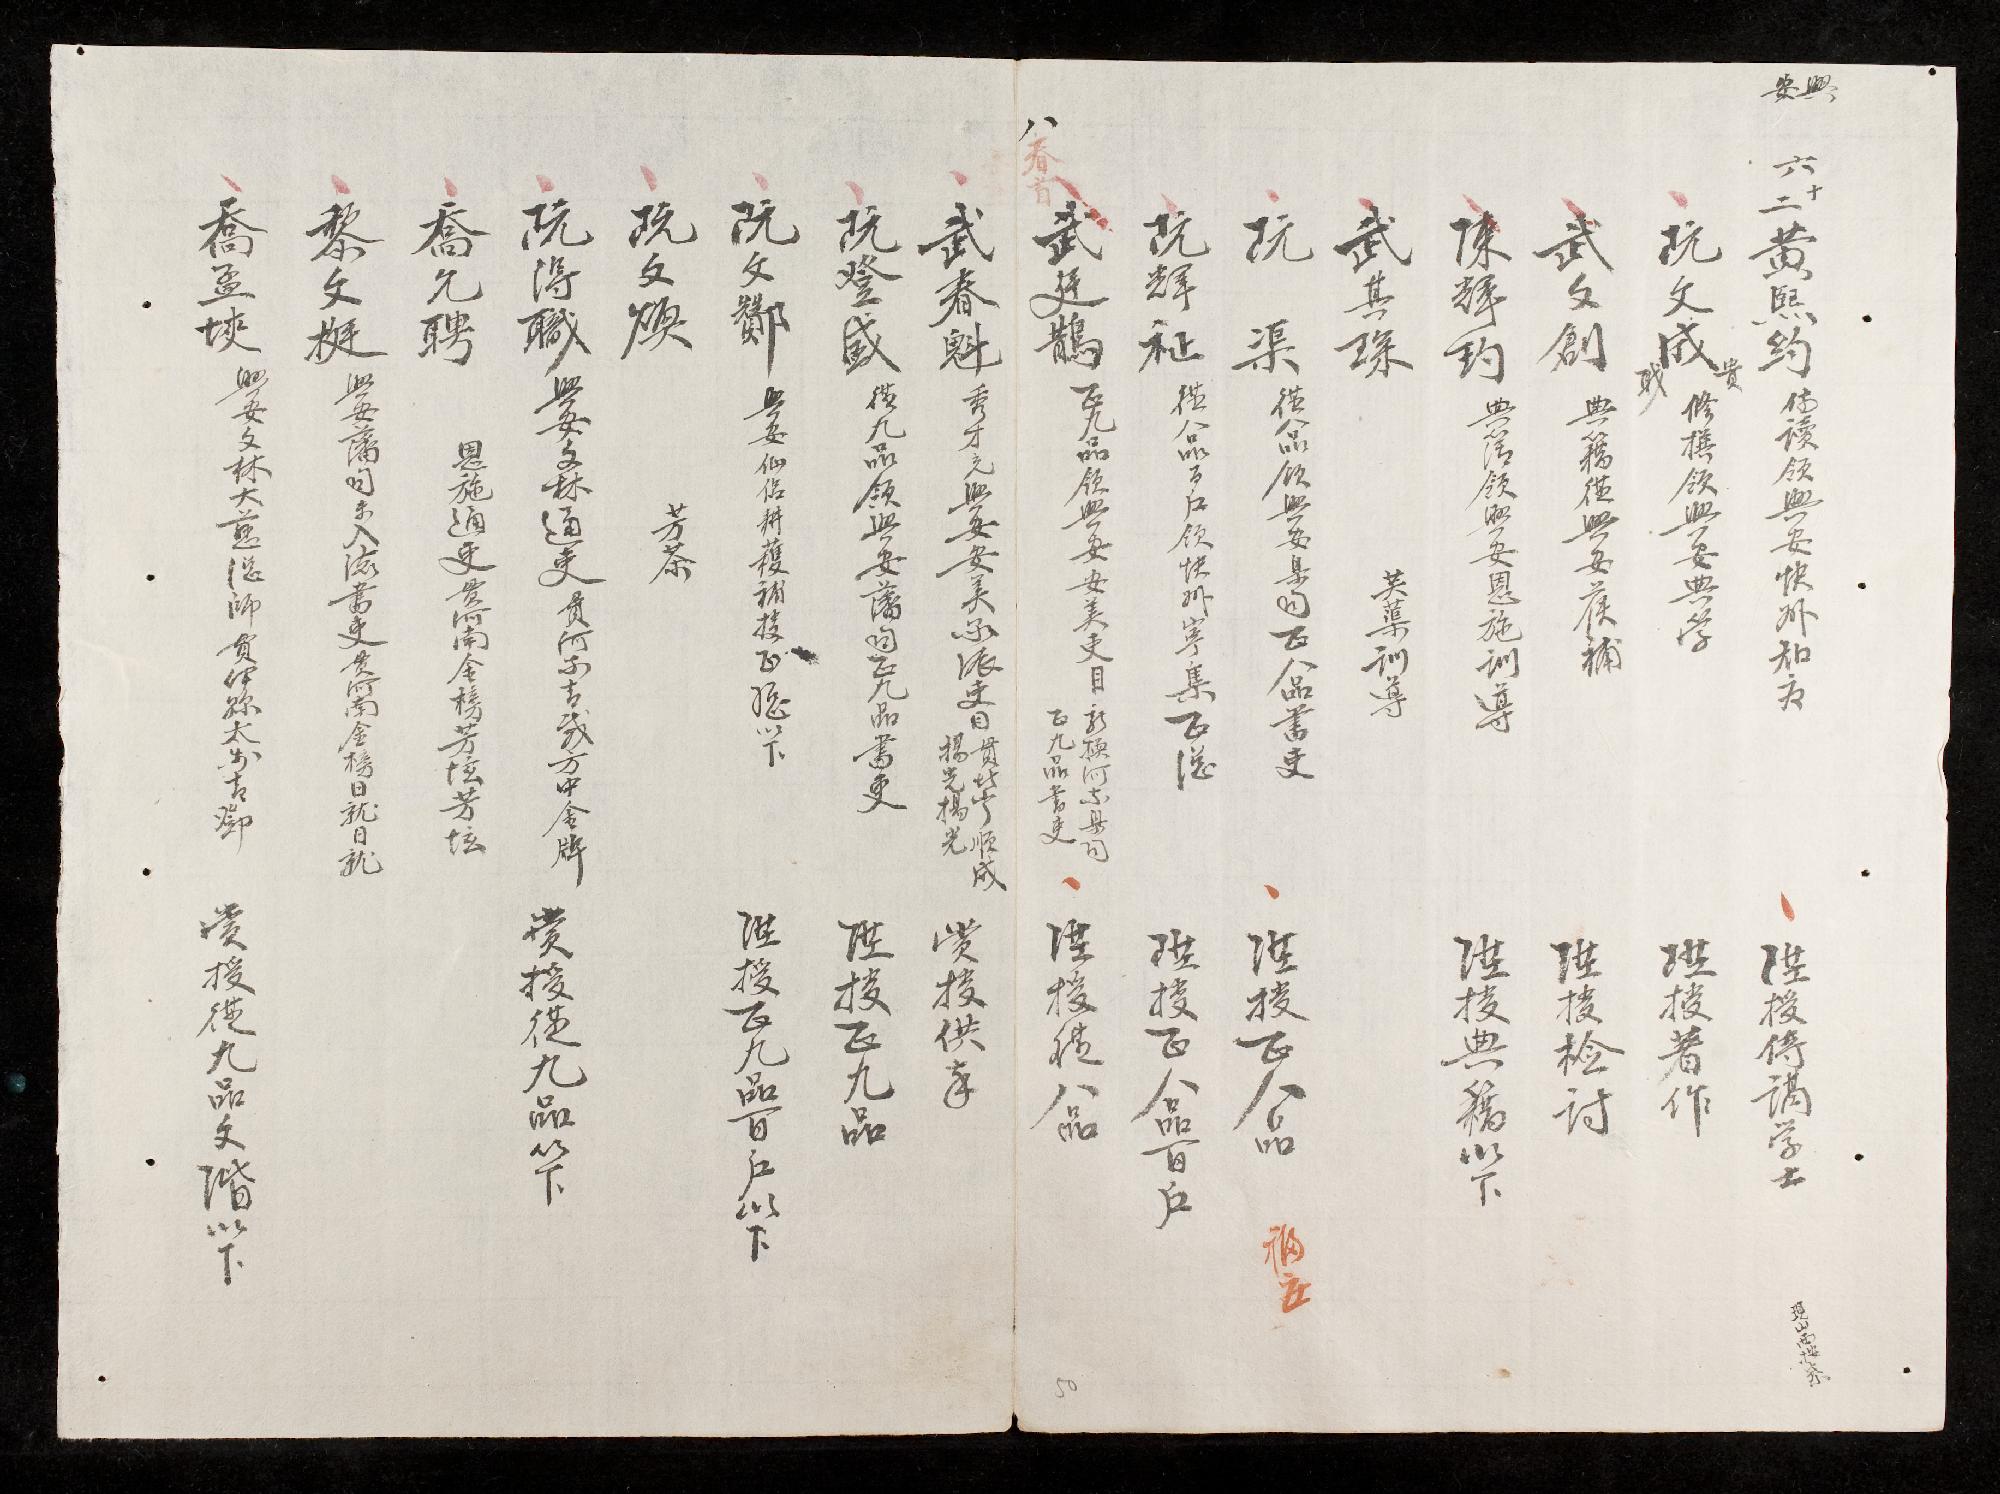 興安
六十二
黄熙約 侍讀領興安快州知府 陞授侍講学士
阮文成 修撰領興安典学 陞授著作
武文創 典籍從興安候補 陞授檢討
陳輝玓 典簿領興安恩施訓導 陞授典籍以下
武其琛 芙蕖訓導
阮渠 從八品領興安臬司正八品書吏 陞授正八品
福庄
阮輝祉 從八品百户領快州寧集正總 陞授正八品百户
武廷鵲 正九品領興安安美吏目 正九品書吏 陞授從八品
春首
八
武春魁 秀才充興安安美承派吏目 貫北寧順成 揚光揚光 賞授供奉
阮登盛 從九品領興安藩司正九品書吏 陞授正九品
阮文酇 興安仙侶耕穫補授正總以下 陞授正九品百户以下
阮文煥 芳茶
阮得職 興安文林通吏 貫河東吉 金牌 賞授從九品以下
喬允聘 恩施通吏 貫河南金榜芳壇芳壇
黎文挺 興安藩司未入流書吏 貫河南金榜日就日就
喬孟 興安文林大慈總師 賞授從九品文階以下
50